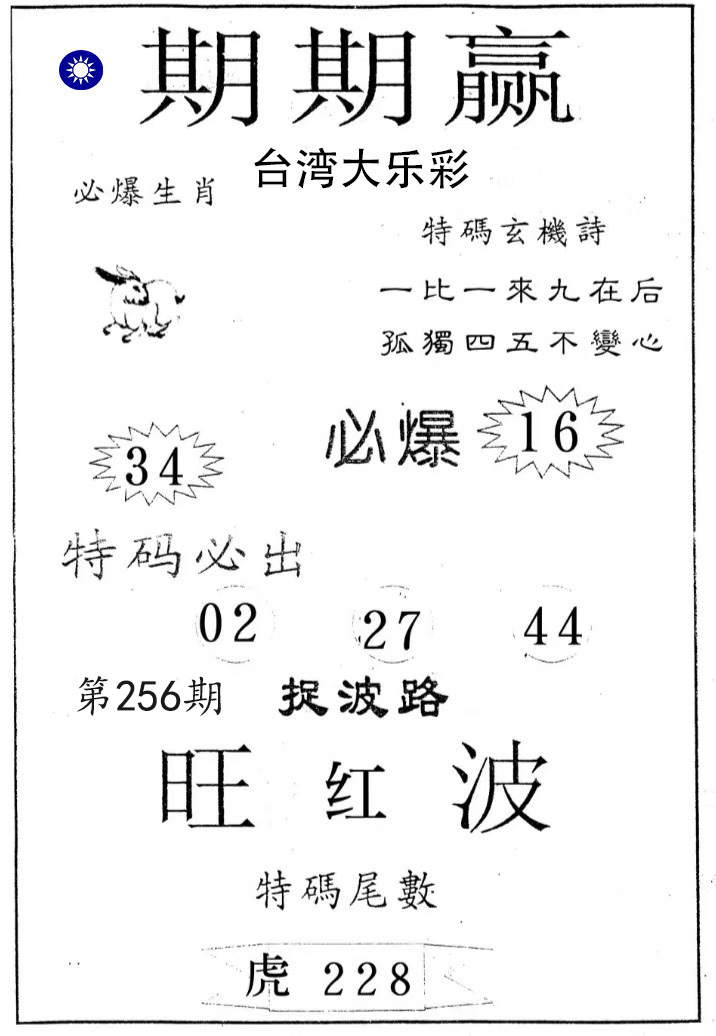 期期赢
台湾大乐彩
必爆生肖
特碼玄機詩
一比一來九在后
孤獨四五不變心
34
必爆 16
特码必出
02 27 44
第256期 捉波路
旺红波
特碼尾數
虎 228